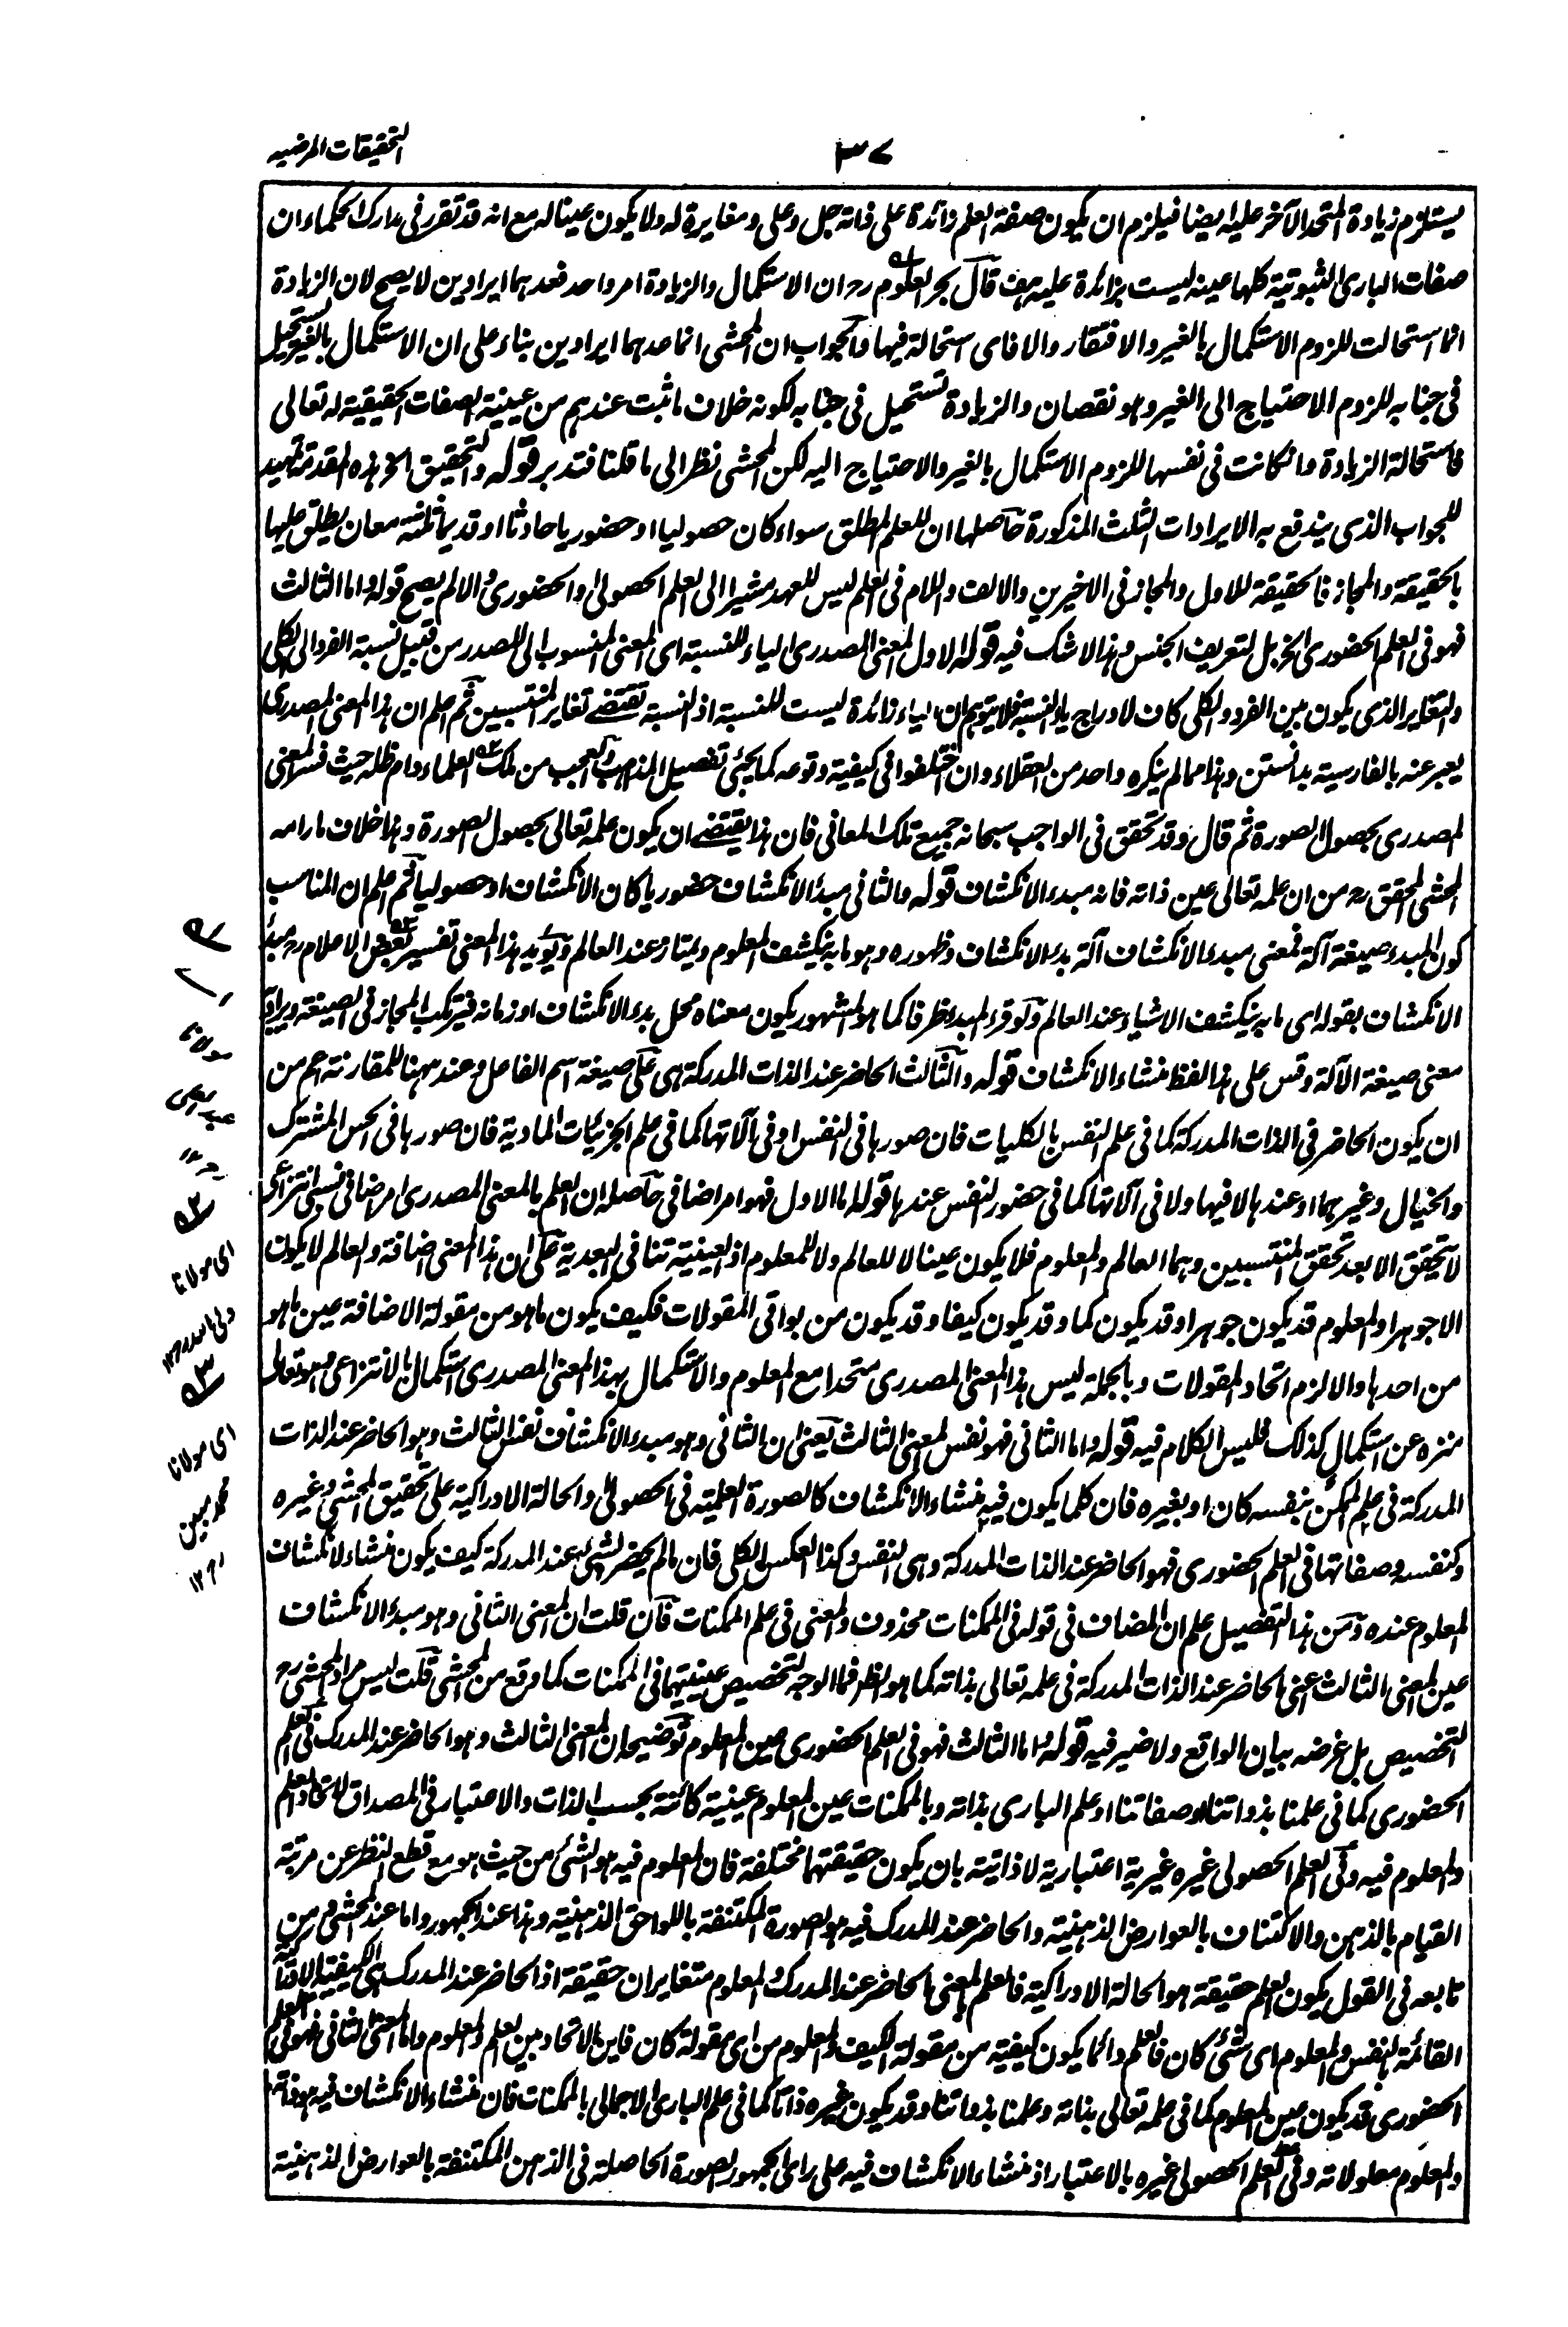 التحقيقات المرضيه
٣٧
يستلزم زيادة المتحد الآخر عليه ايضا فيلزم ان يكون صفة العلم زائدة على ذاته جل وعلى ومغايرة له ولا يكون عينا له مع انه قد تقرر فى مدارك الحكماء ان
صفات البارى الثبوتية كلها عينه ليست بزائدة عليه هف قال بحر العلوم رح ان الاستكمال والزيادة امر واحد فعدهما ايرادين لا يصح لان الزيادة
انما استحالت للزوم الاستكمال بالغير والافتقار والا فاى استحالة فيها والجواب ان المحشى انما عدهما ايرادين بناء على ان الاستكمال بالغير يستحيل
فى جنابه للزوم الاحتياج الى الغير وهو نقصان والزيادة تستحيل فى جنابه لكونه خلاف ما ثبت عندهم من عينية الصفات الحقيقية له تعالى
فاستحالة الزيادة وان كانت فى نفسها للزوم الاستكمال بالغير والاحتياج اليه لكن المحشى نظر الى ما قلنا فتدبر قوله والتحقيق الخ هذه المقدمة تمهيد
للجواب الذى يندفع به الايرادات الثلث المذكورة حاصلها ان للعلم المطلق سواء كان حصوليا او حضوريا حادثا او قديما ثلثة معان يطلق عليها
بالحقيقة والمجاز فالحقيقة للاول والمجاز فى الاخيرين والالف واللام فى العلم ليس للعهد مشيرا الى العلم الحصولى والحضورى والا لم يصح قوله واما الثالث
فهو فى العلم الحضورى الخ بل لتعريف الجنس وهذا لا شك فيه قوله الاول المعنى المصدرى الياء للنسبة اى المعنى المنسوب الى المصدر من قبيل نسبة الفرد الى الكلى
والتغاير الذى يكون بين الفرد والكلى كاف لادراج ياء النسبة فلا يتوهم ان الياء زائدة ليست للنسبة اذ النسبة تقتضے تغاير المنتسبين ثم اعلم ان هذا المعنى المصدرى
يعبر عنه بالفارسية بدانستن وهذا مما لم ينكره واحد من العقلاء وان اختلفوا فى كيفية وقوعه كما يجئى تفصيل المذاهب والعجب من ملك العلماء دام ظله حيث فسر المعنى
المصدرى بحصول الصورة ثم قال وقد تحقق فى الواجب سبحانه جميع تلك المعانى فان هذا يقتضے ان يكون علمه تعالى بحصول الصورة وهذا خلاف ما رامه
المحشى المحقق رح من ان علمه تعالى عين ذاته فانه مبدء الانكشاف قوله والثانى مبدأ الانكشاف حضوريا كان الانكشاف او حصوليا ثم اعلم ان المناسب
كون المبدء صيغة آلة فمعنى مبدء الانكشاف آلة بدء الانكشاف وظهوره وهو ما به ينكشف المعلوم ويمتاز عند العالم ويؤيد هذا المعنى تفسير بعض الاعلام رح مبدأ
الانكشاف بقوله اى ما به ينكشف الاشياء عند العالم ولو قرء المبدء ظرفا كما هو المشهور يكون معناه محل بدء الانكشاف او زمانه فيرتكب المجاز فى الصيغة ويراد
معنى صيغة الآلة وقس على هذا لفظ منشاء الانكشاف قوله والثالث الحاضر عند الذات المدركة هى على صيغة اسم الفاعل وعند ههنا للمقارنة اعم من
ان يكون الحاضر فى الذات المدركة كما فى علم النفس بالكليات فان صورها فى النفس او فى آلاتها كما فى علم الجزئيات المادية فان صورها فى الحس المشترك
والخيال وغيرهما او عندها لا فيها ولا فى آلاتها كما فى حضور النفس عندها قوله اما الاول فهو امر اضافى حاصله ان العلم بالمعنى المصدرى امر اضافى نسبى انتزاعى
لا يتحقق الا بعد تحقق المنتسبين وهما العالم والمعلوم فلا يكون عينا لا للعالم ولا للمعلوم اذ العينية تنافى البعدية على ان هذا المعنى اضافة والعالم لا يكون
الا جوهرا والمعلوم قد يكون جوهرا وقد يكون كما وقد يكون كيفا وقد يكون من بواقى المقولات فكيف يكون ما هو من مقولة الاضافة عين ما هو
من احدها والا لزم اتحاد المقولات وبالجملة ليس هذا المعنى المصدرى متحدا مع المعلوم والاستكمال بهذا المعنى المصدرى استكمال بالانتزاعى وهو تعالى
منزه عن استكمال كذلك فليس الكلام فيه قوله واما الثانى فهو نفس المعنى الثالث يعنى ان الثانى وهو مبدء الانكشاف نفس الثالث وهو الحاضر عند الذات
المدركة فى علم الممكن بنفسه كان او بغيره فان كلما يكون فيه منشاء الانكشاف كالصورة العلمية فى الحصولى والحالة الادراكية على تحقيق المحشى وغيره
وكنفسه وصفاتها فى العلم الحضورى فهو الحاضر عند الذات المدركة وهى النفس وكذا العكس الكلى فان ما لم يحضر الشئى عند المدركة كيف يكون منشاء لانكشاف
المعلوم عنده ومن هذا التفصيل علم ان المضاف فى قوله فى الممكنات محذوف والمعنى فى علم الممكنات فان قلت ان المعنى الثانى وهو مبدء الانكشاف
عين المعنى الثالث اعنى الحاضر عند الذات المدركة فى علمه تعالى بذاته كما هو الظاهر فما الوجه لتخصيص عينيتهما فى الممكنات كما وقع من المحشى قلت ليس مراد المحشى رح
التخصيص بل غرضه بيان الواقع ولا ضير فيه قوله واما الثالث فهو فى العلم الحضورى عين المعلوم توضيحه ان المعنى الثالث وهو الحاضر عند المدرك فى العلم
الحضورى كما فى علمنا بذواتنا وصفاتنا او علم البارى بذاته وبالممكنات عين المعلوم عينية كائنة بحسب الذات والاعتبار فى المصداق لاتحاد العلم
والمعلوم فيه وفى العلم الحصولى غيره غيرية اعتبارية لا ذاتية بان يكون حقيقتهما مختلفة فان المعلوم فيه هو الشئ من حيث هو مع قطع النظر عن مرتبة
القيام بالذهن والاكتناف بالعوارض الذهنية والحاضر عند المدرك فيه هو الصورة المكتنفة باللواحق الذهنية وهذا عند الجمهور واما عند المحشى ومن
تابعه فى القول بكون العلم حقيقة هو الحالة الادراكية فالعلم بالمعنى الحاضر عند المدرك والمعلوم متغايران حقيقة اذ الحاضر عند المدرك هى الكيفية الادراكية
القائمة بالنفس والمعلوم اى شئى كان فالعلم دائما يكون كيفية من مقولة الكيف والمعلوم من اى مقولة كان فاين الاتحاد بين العلم والمعلوم واما المعنى الثانى فهو فى العلم
الحضورى قد يكون عين المعلوم كما فى علمه تعالى بذاته وعلمنا بذواتنا وقد يكون غيره ذاتا كما فى علم البارى الاجمالى بالممكنات فان منشاء الانكشاف فيه هو ذاته
والمعلوم معلولاته وفى العلم الحصولى غيره بالاعتبار اذ منشاء الانكشاف فيه على راى الجمهور الصورة الحاصلة فى الذهن المكتنفة بالعوارض الذهنية
مولانا
عبد العلى
١٢
اى مولانا
ولى الله ١٢
اى مولانا
محمد مبين
١٢